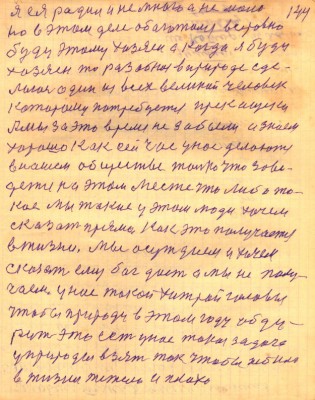 144
я ея ради и не много а не мало
но в этом деле обаготому всеровно
буду этому хозяен а когда я буду
хозяен то разовная в природе сде-
лаюс один из всех великой человек
которому потребуется прекащения
А мы за это время не забыли и знаем
хорошо как сейчас у нас делаются
в нашем обществе только что заве-
дется на этом месте это либо та-
кое мы такие у этом люди хочем
сказат прямо как это получается
в жизни. Мы осуждаем и хочем
сказат ему бог дает а мы не полу-
чаем у нас такой хитрай головы
чтобы природу в этом году обду-
рит это ест у нас така задача
у природы взят так чтобы не было
в жизни тяжело и плохо